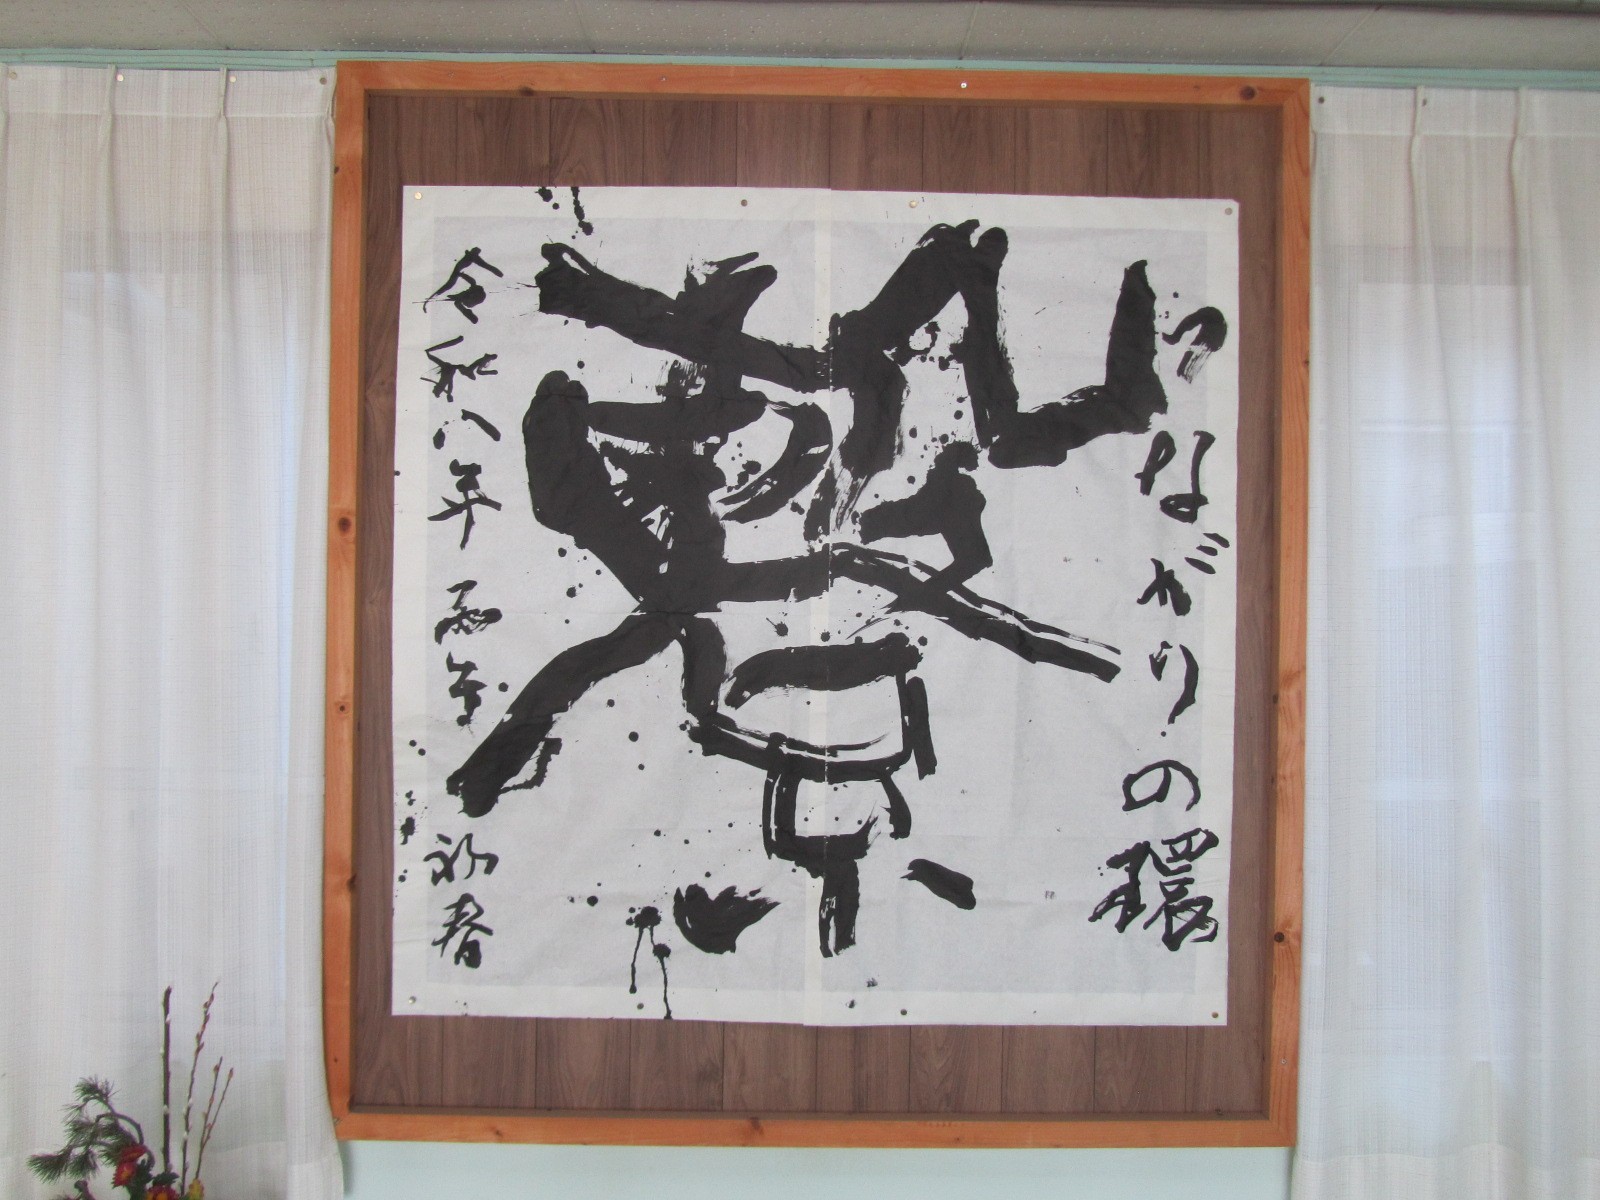 つながりの環
繋
令和八年 丙午 初春